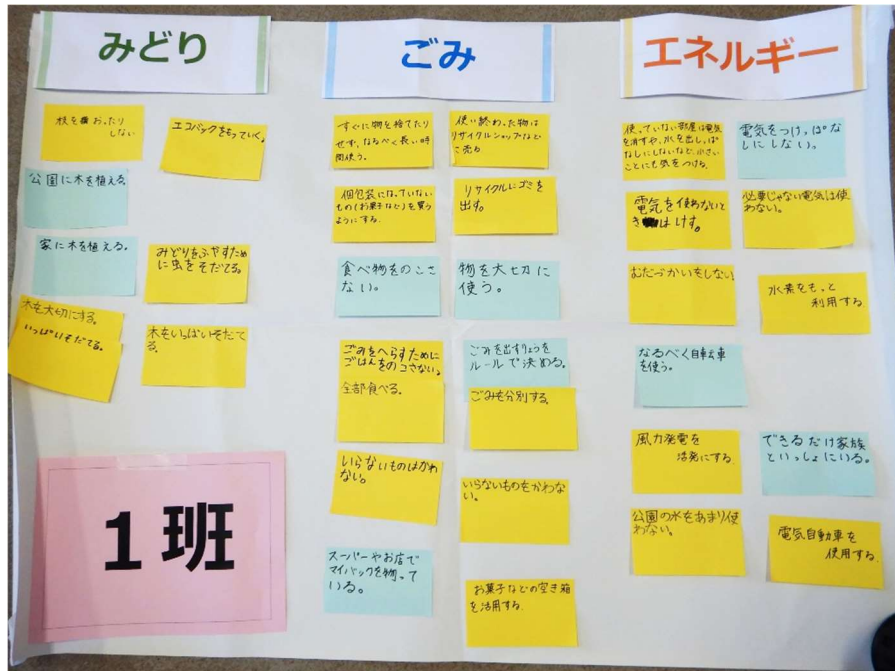 みどり
枝を折おったり
しない
エコバックをもっていく。
公園に木を植える。
家に木を植える。
みどりをふやすため
に虫をそだてる。
木を大切にする。
いっぱいそだてる。
木をいっぱいそだて
る。
1班
ごみ
すぐに物を捨てたり
せず、なるべく長い時間
使う。
使い終わった物は
リサイクルショップなど
で売る
個包装になっていない
もの(お菓子など)を買う
ようにする。
リサイクルにゴミを
出す。
食べ物をのこさ
ない。
物を大切に
使う。
ごみをへらすために
ごはんをのコさない。
全部食べる。
ごみを出すりょうを
ルールで決める。
ごみを分別する。
いらないものはかわ
ない。
いらないものをかわな
い。
スーパーやお店で
マイバックを物って
いる。
お菓子などの空き箱
を活用する.
エネルギー
使っていない部屋は電気
を消すや、水を出しっぱ
なしにしないなど、小さい
ことにも気をつける。
電気をつけっぱな
しにしない。
電気を使わないと
きはけす。
必要じゃない電気は使
わない。
むだづかいをしない
水素をもっと
利用する
なるべく自転車
を使う。
風力発電を
活発にする.
できるだけ家族
といっしょにいる。
公園の水をあまり使
わない。
電気自動車を
使用する.